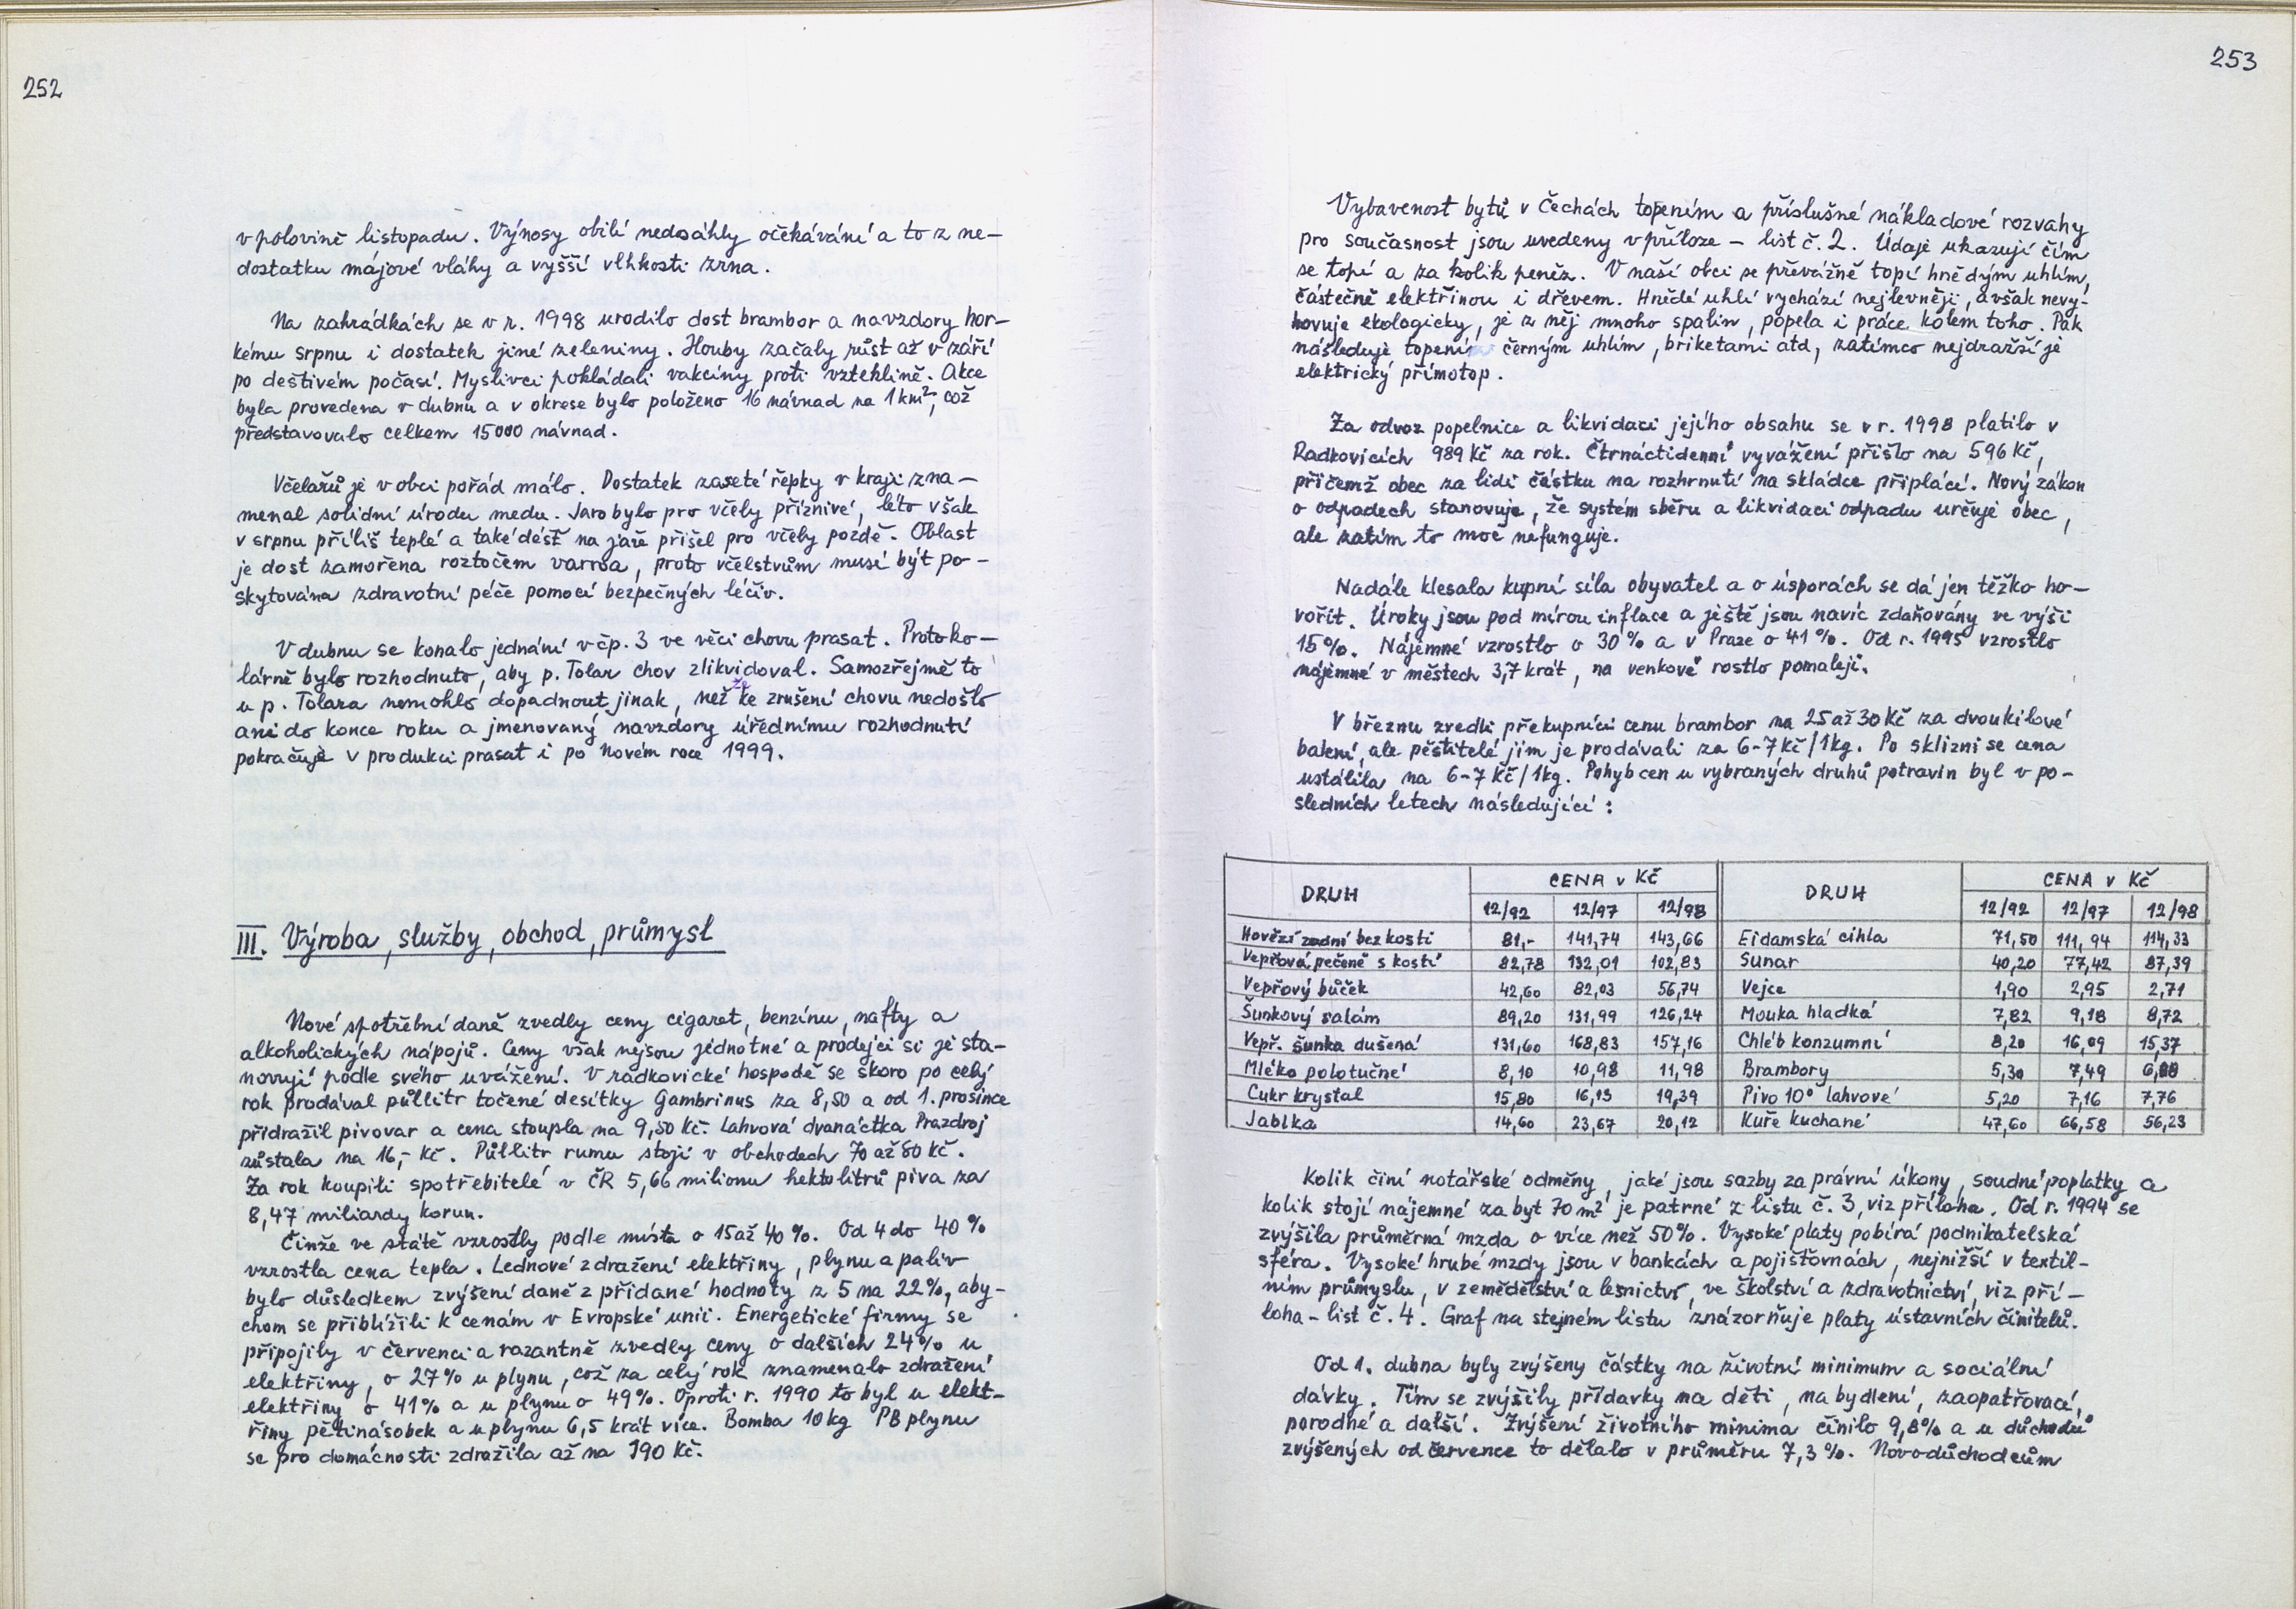 252
v polovině listopadu. Výnosy obilí nedosáhly očekávání a to z ne-
dostatku májové vláhy a vyšší vlhkosti zrna.
Na zahrádkách se v r. 1998 urodilo dost brambor a navzdory hor-
kému srpnu i dostatek jiné zeleniny. Houby začaly růst až v září
po deštivém počasí. Myslivci pokládali vakcíny proti vzteklině. Akce
byla provedena v dubnu a v okrese bylo položeno 16 návnad na 1 km², což
představovalo celkem 15000 návnad.
Včelařů je v obci pořád málo. Dostatek zaseté řepky v kraji zna-
menal solidní úrodu medu. Jaro bylo pro včely příznivé, léto však
v srpnu příliš teplé a také déšť na jaře přišel pro včely pozdě. Oblast
je dost zamořena roztočem varroa, proto včelstvům musí být po-
skytována zdravotní péče pomocí bezpečných léčiv.
V dubnu se konalo jednání v čp. 3 ve věci chovu prasat. Protoko-
lárně bylo rozhodnuto, aby p. Tolar chov zlikvidoval. Samozřejmě to
u p. Tolara nemohlo dopadnout jinak, než že ke zrušení chovu nedošlo
ani do konce roku a jmenovaný navzdory úřednímu rozhodnutí
pokračuje v produkci prasat i po Novém roce 1999.
III. Výroba, služby, obchod, průmysl
Nové spotřební daně zvedly ceny cigaret, benzínu, nafty a
alkoholických nápojů. Ceny však nejsou jednotné a prodejci si je sta-
novují podle svého uvážení. V radkovické hospodě se skoro po celý
rok prodával půllitr točené desítky Gambrinus za 8,50 a od 1. prosince
přidražil pivovar a cena stoupla na 9,50 Kč. Lahvová dvanáctka Prazdroj
zůstala na 16,- Kč. Půllitr rumu stojí v obchodech 70 až 80 Kč.
Za rok koupili spotřebitelé v ČR 5,66 milionu hektolitrů piva za
8,47 miliardy korun.
Činže ve státě vzrostly podle místa o 15 až 40 %. Od 4 do 40 %
vzrostla cena tepla. Lednové zdražení elektřiny, plynu a paliv
bylo důsledkem zvýšení daně z přidané hodnoty z 5 na 22 %, aby-
chom se přiblížili k cenám v Evropské unii. Energetické firmy se
připojily v červenci a razantně zvedly ceny o dalších 24 % u
elektřiny, o 27 % u plynu, což za celý rok znamenalo zdražení
elektřiny o 41 % a u plynu o 49 %. Oproti r. 1990 to byl u elekt-
řiny pětinásobek a u plynu 6,5 krát více. Bomba 10 kg PB plynu
se pro domácnosti zdražila až na 190 Kč.
253
Vybavenost bytů v Čechách topením a příslušné nákladové rozvahy
pro současnost jsou uvedeny v příloze - list č. 2. Údaje ukazují čím
se topí a za kolik peněz. V naší obci se převážně topí hnědým uhlím,
částečně elektřinou i dřevem. Hnědé uhlí vychází nejlevněji, avšak nevy-
hovuje ekologicky, je z něj mnoho spalin, popela i práce kolem toho. Pak
následuje topení černým uhlím, briketami atd, zatímco nejdražší je
elektrický přímotop.
Za odvoz popelnice a likvidaci jejího obsahu se v r. 1998 platilo v
Radkovicích 989 Kč za rok. Čtrnáctidenní vyvážení přišlo na 596 Kč,
přičemž obec za lidi částku na rozhrnutí na skládce připlácí. Nový zákon
o odpadech stanovuje, že systém sběru a likvidaci odpadu určuje obec,
ale zatím to moc nefunguje.
Nadále klesala kupní síla obyvatel a o úsporách se dá jen těžko ho-
vořit. Úroky jsou pod mírou inflace a ještě jsou navíc zdaňovány ve výši
15 %. Nájemné vzrostlo o 30 % a v Praze o 41 %. Od r. 1995 vzrostlo
nájemné v městech 3,7 krát, na venkově rostlo pomaleji.
V březnu zvedli překupníci cenu brambor na 25 až 30 Kč za dvoukilové
balení, ale pěstitelé jim je prodávali za 6-7 Kč/1kg. Po sklizni se cena
ustálila na 6-7 Kč/1kg. Pohyb cen u vybraných druhů potravin byl v po-
sledních letech následující:
DRUH CENA v Kč DRUH CENA v Kč
12/92 12/97 12/98 12/92 12/97 12/98
Hovězí zadní bez kosti 81,- 141,74 143,66 Eidamská cihla 71,50 111,94 114,33
Vepřová pečeně s kostí 82,78 132,01 102,83 Sunar 40,20 77,42 87,39
Vepřový bůček 42,60 82,03 56,74 Vejce 1,90 2,95 2,71
Šunkový salám 89,20 131,99 126,24 Mouka hladká 7,82 9,18 8,72
Vepř. šunka dušená 131,60 168,83 157,16 Chléb konzumní 8,20 16,09 15,37
Mléko polotučné 8,10 10,98 11,98 Brambory 5,30 7,49
Cukr krystal 15,80 16,13 19,39 Pivo 10° lahvové 5,20 7,16 7,76
Jablka 14,60 23,67 20,12 Kuře kuchané 47,60 66,58 56,23
Kolik činí notářské odměny, jaké jsou sazby za právní úkony, soudní poplatky a
kolik stojí nájemné za byt 70 m² je patrné z listu č. 3, viz příloha. Od r. 1994 se
zvýšila průměrná mzda o více než 50%. Vysoké platy pobírá podnikatelská
sféra. Vysoké hrubé mzdy jsou v bankách a pojišťovnách, nejnižší v textil-
ním průmyslu, v zemědělství a lesnictví, ve školství a zdravotnictví, viz pří-
loha - list č. 4. Graf na stejném listu znázorňuje platy ústavních činitelů.
Od 1. dubna byly zvýšeny částky na životní minimum a sociální
dávky. Tím se zvýšily přídavky na děti, na bydlení, zaopatřovací,
porodné a další. Zvýšení životního minima činilo 9,8 % a u důchodů
zvýšených od července to dělalo v průměru 7,3 %. Novodůchodcům